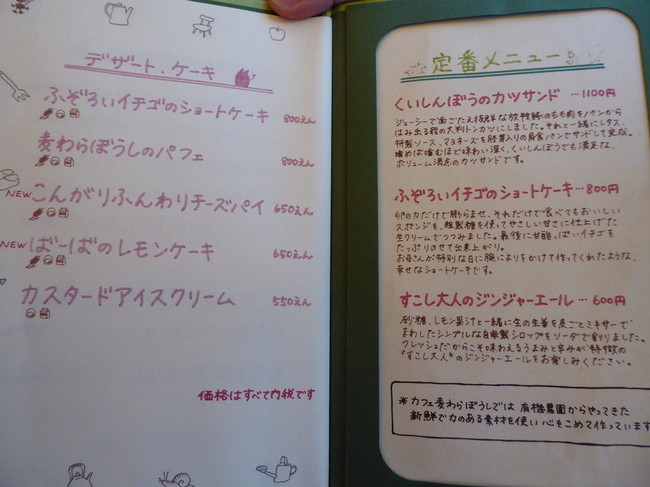 デザート、ケーキ
ふぞろいイチゴのショートケーキ 800えん
麦わらぼうしのパフェ 800えん
NEW こんがりふんわりチーズパイ 650えん
NEW ばーばのレモンケーキ 650えん
カスタードアイスクリーム 550えん
価格はすべて内税です
定番メニュー
くいしんぼうのカツサンド …1100円
ジューシーで歯ごたえ抜群な放牧豚のもも肉をパンから
はみ出る程の大判トンカツにしました。それと一緒にレタス、
特製ソース、マヨネーズを胚芽入りの食パンでサンドして完成。
噛めば噛むほど味わい深く、くいしんぼうでも満足な、
ボリューム満点のカツサンドです。
ふぞろいイチゴのショートケーキ…800円
卵の力だけで膨らませ、それだけで食べてもおいしい
スポンジを、粗製糖を使ってやさしい甘さに仕上げた
生クリームでつつみました。最後に甘酸っぱいイチゴを
たっぷりさせて出来上がり。
お母さんが特別な日に腕によりをかけて作ってくれたような、
幸せなショートケーキです。
すこし大人のジンジャーエール … 600円
砂糖、レモン果汁と一緒に生の生姜を皮ごとミキサーで
まわしたシンプルな自家製シロップをソーダで割りました。
フレッシュだからこそ味わえるうまみと辛みが特徴の
"すこし大人"のジンジャーエールをお楽しみください。
※カフェ麦わらぼうしでは 有機農園からやってきた
新鮮で力のある素材を使い 心をこめて作っています